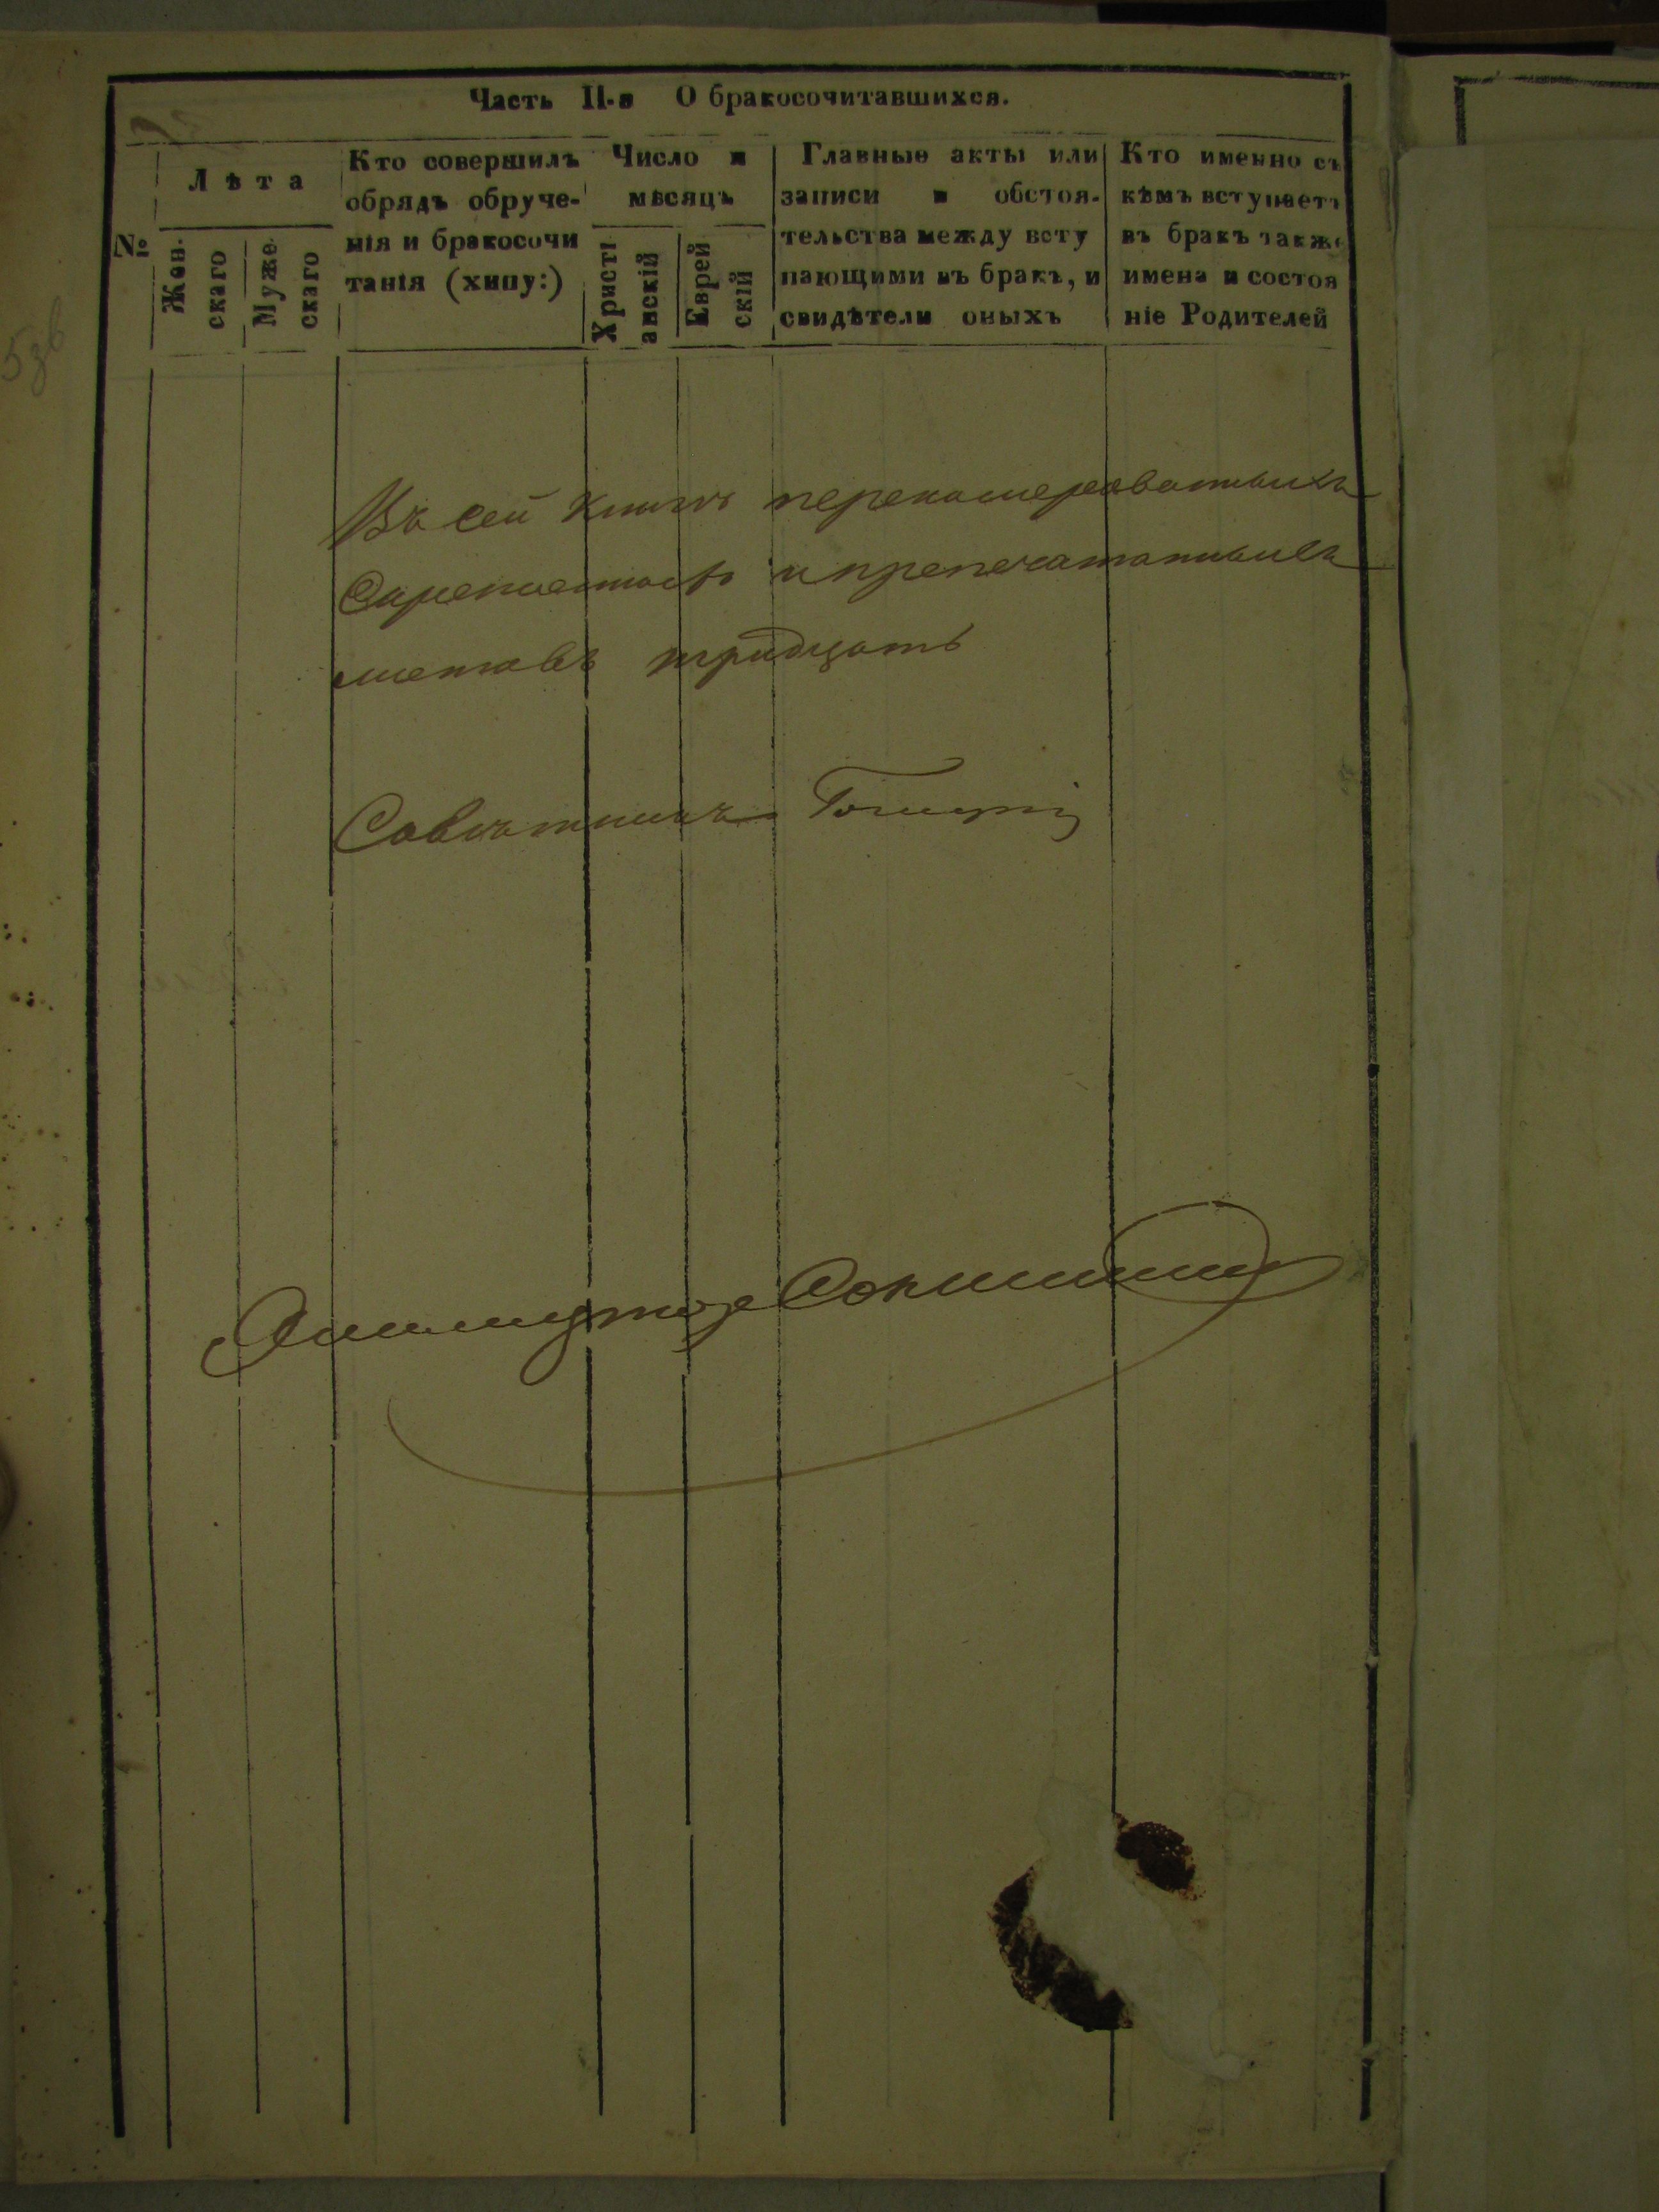 Часть II-я О бракосочитавшихся.
№
Лѣта
Жен-
скаго
Муже-
скаго
Кто совершилъ
обрядъ обруче-
нія и бракосочи
танія (хипу:)
Число и
мѣсяцъ
Христі
анскій
Еврей
скій
Главные акты или
записи и обстоя-
тельства между всту
пающими въ бракъ, и
свидѣтели оныхъ
Кто именно съ
кѣмъ вступаетъ
въ бракъ также
имена и состоя
ніе Родителей
Въ сей книгѣ перенумерованныхъ
и препечатанныхъ
листовъ тридцать
Совѣтникъ